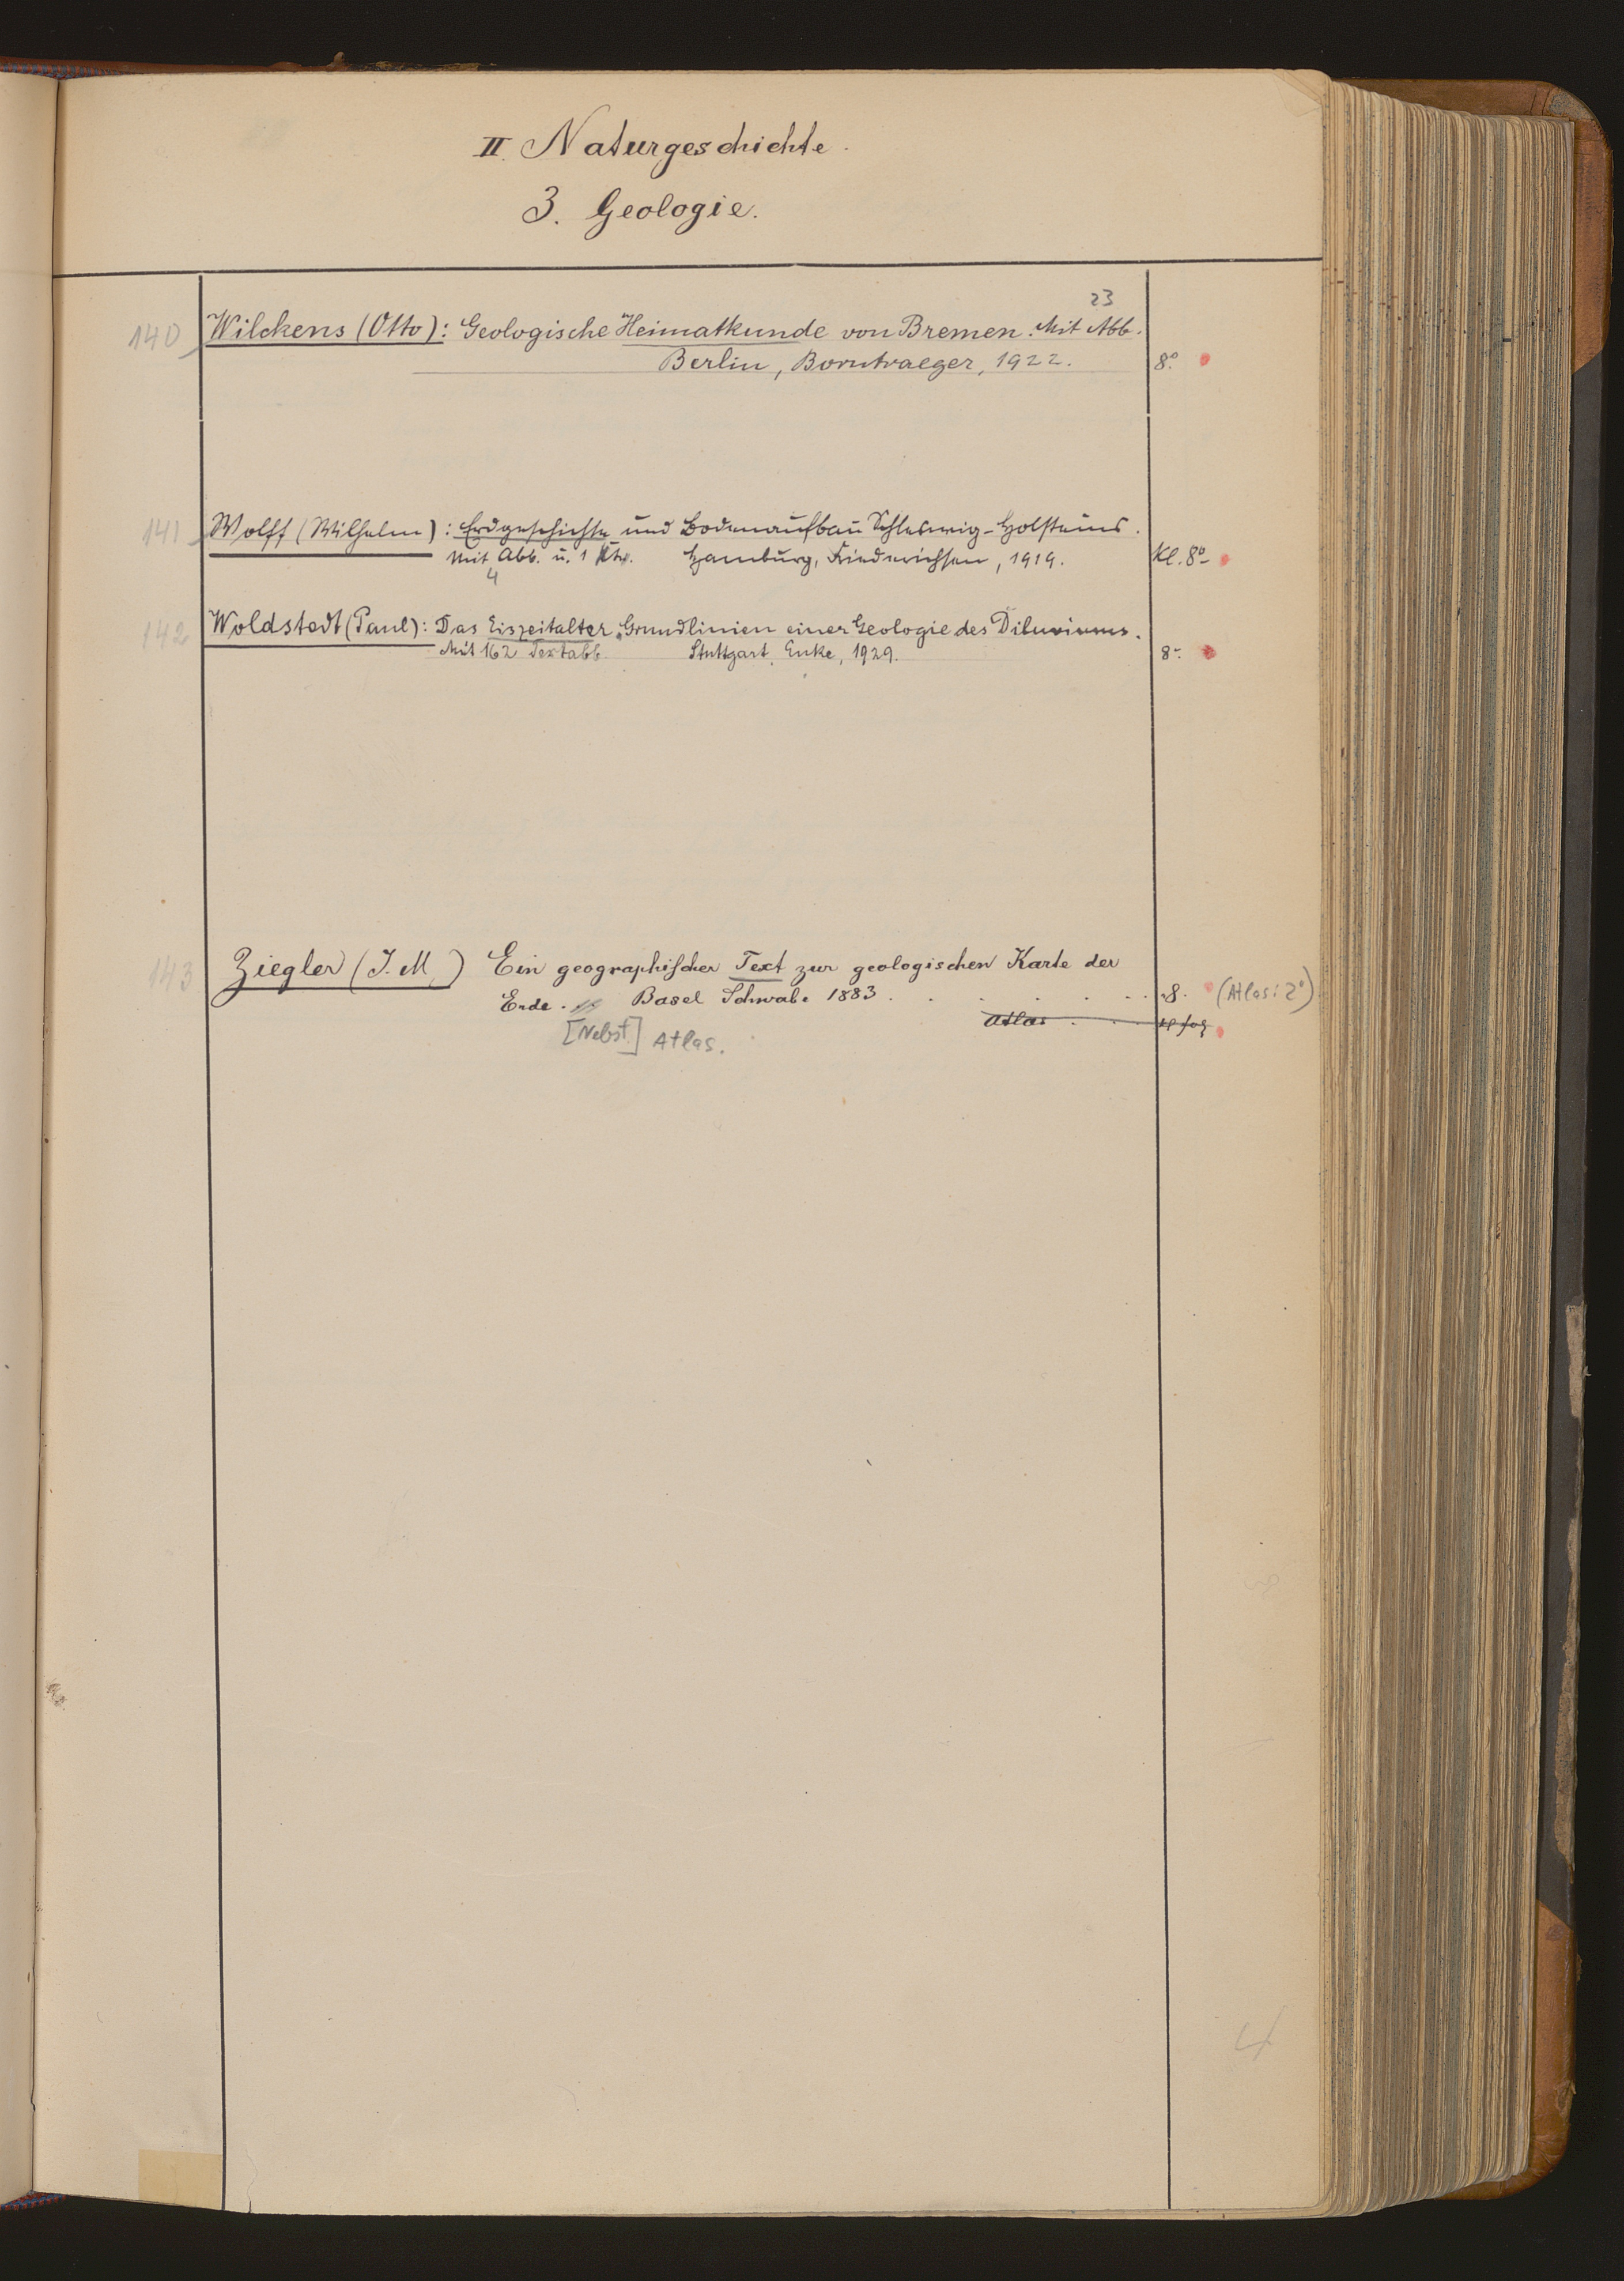 II. Naturgeschichte.
3. Geologie.
23
140 Wilckens (Otto): Geologische Heimatkunde von Bremen. Mit Abb.
Berlin, Borntraeger, 1922. 8°.
141 Wolff (Wilhelm): Erdgeschichte und Bodenaufbau Schleswig-Holsteins.
Mit Abb. u. 1 Hamburg, Friederichsen, 1919. Kl. 8°
4
142 Woldstedt (Paul): Das Eiszeitalter. Grundlinien einer Geologie des Diluviums.
Mit 162 Textabb. Stuttgart, Enke, 1929. 8°
143 Ziegler (J. M.) Ein geographischer Text zur geologischen Karte der
Erde. Basel Schwabe 1883 . . . . . . . 8. (Atlas: 2°)
Atlas . . . fol
[Nebst] Atlas.
4